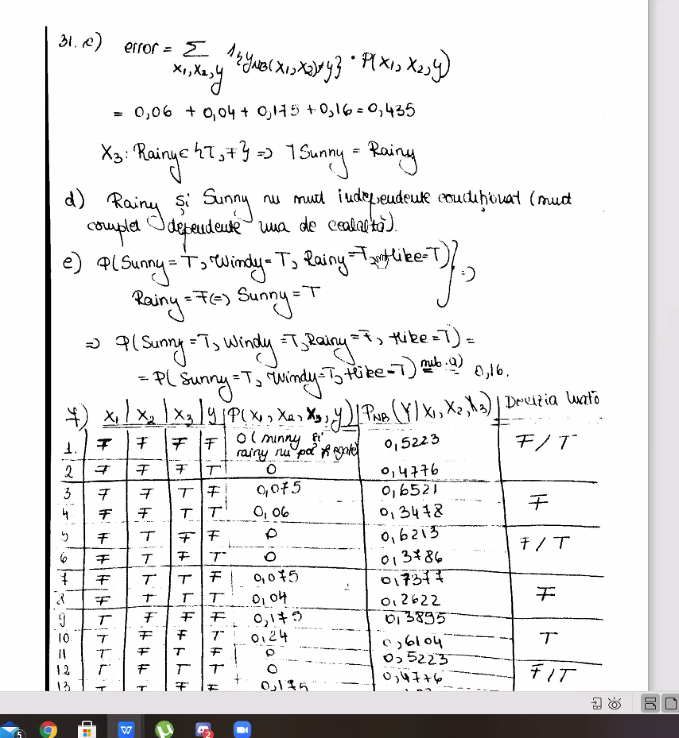 31. c) error = Σ 1{yNB(x1,x2)≠y} · P(x1, x2, y)
x1,x2,y
= 0,06 + 0,04 + 0,175 + 0,16 = 0,435
X3: Rainy ∈ {T, F} => ⌉Sunny = Rainy
d) Rainy și Sunny nu sunt independente condițional (sunt
complet dependente una de cealaltă).
e) P(Sunny=T, Windy=T, Rainy=F, Hike=T) } =>
Rainy = F (=) Sunny = T
=> P(Sunny=T, Windy=T, Rainy=F, Hike=T) =
= P(Sunny=T, Windy=T, Hike=T) sub. a) = 0,16.
f) X1 | X2 | X3 | Y | P(X1, X2, X3, Y) | PNB(Y|X1, X2, X3) | Decizia luată
1. F F F F 0 (sunny și rainy nu pot fi egale) 0,5223 F/T
2 F F F T 0 0,4776
3 F F T F 0,075 0,6521 F
4 F F T T 0,06 0,3478
5 F T F F 0 0,6213 F/T
6 F T F T 0 0,3786
7 F T T F 0,075 0,7377 F
8 F T T T 0,04 0,2622
9 T F F F 0,175 0,3895 T
10 T F F T 0,24 0,6104
11 T F T F 0 0,5223 F/T
12 T F T T 0 0,4776
13 T T F F 0,175
5
W
2